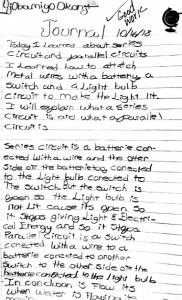 Good
Work
Journal 10/16/18
Today I learned about series
circuit and parallel circuits
I learned how to attch
Metal wires with a battery a
switch and a Light bulb
circuit to make the Light lit.
I will explain what a series
circuit is and what a parallel
circuit is
Series circuit is a batterie con-
ected with a wire and the other
side of the batterie too, conected
to the Light bulb conected to
The Switch But the switch is
open so the Light bulb is
not Lit cause its open so
it stops giving Light & Electri-
cal Energy and so it stops
Parallel Circuit is a switch
conected with a wire to a
batterie conected to another
switch to the other side on the
batterie conected to the light bulb
In conclusion is Flow its
when water is flowing its